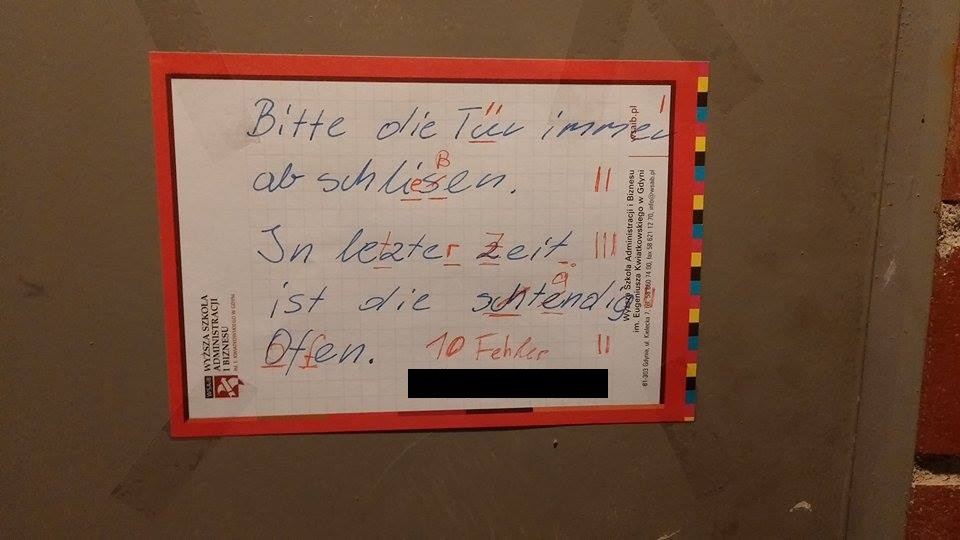 Bitte die Tür immer
ab schließen.
In letzter Zeit
ist die schtendig
Offen. 10 Fehler
I
II
III
II
WSAIB
WYŻSZA SZKOŁA
ADMINISTRACJI
I BIZNESU
IM. E. KWIATKOWSKIEGO W GDYNI
wsaib.pl
Wyższa Szkoła Administracji i Biznesu
im. Eugeniusza Kwiatkowskiego w Gdyni
81-303 Gdynia, ul. Kielecka 7, tel. 58 660 74 00, fax 58 621 12 70, info@wsaib.pl